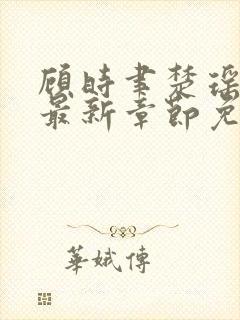 顾时聿楚瑶
最新章节免
華娥傳